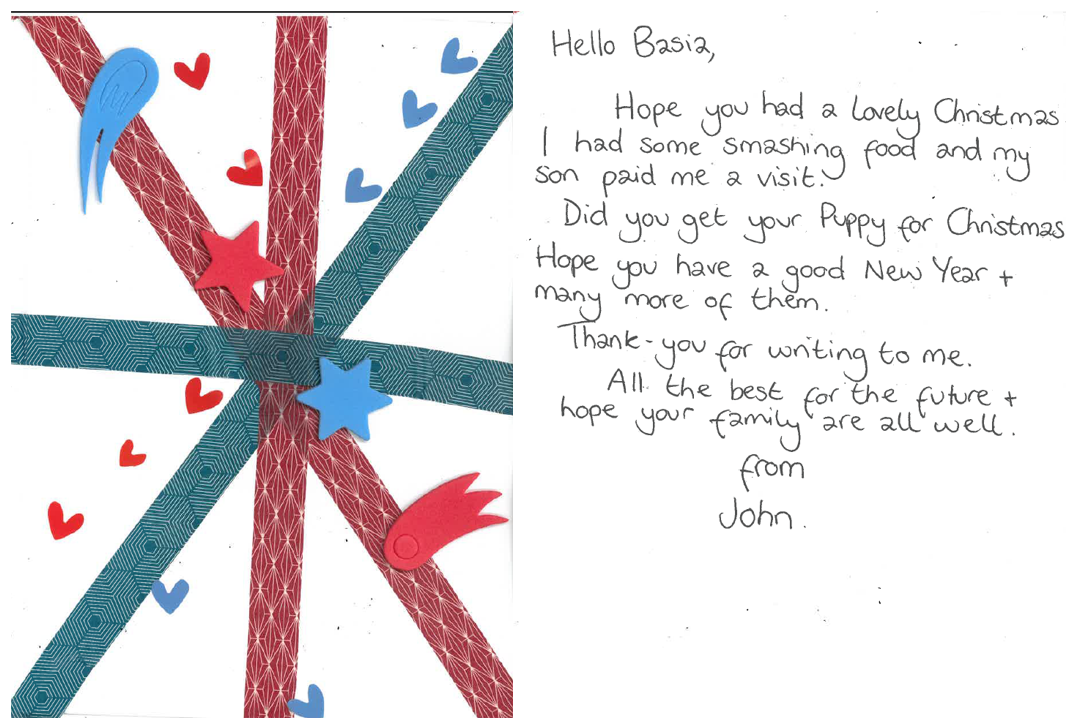 Hello Basia,
Hope you had a lovely Christmas
I had some smashing food and my
son paid me a visit.
Did you get your Puppy for Christmas
Hope you have a good New Year +
many more of them.
Thank-you for writing to me.
All the best for the future +
hope your family are all well.
from
John.